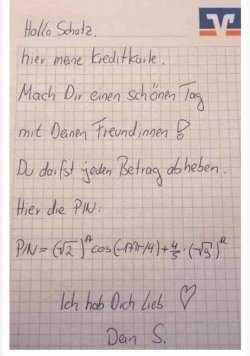 Hallo Schatz,
hier meine Kreditkarte.
Mach Dir einen schönen Tag
mit Deinen Freundinnen!
Du darfst jeden Betrag abheben.
Hier die PIN:
PIN = (√2)^17 cos(-17π/4) + 4/5 · (√5)^12
Ich hab Dich lieb ♡
Dein S.